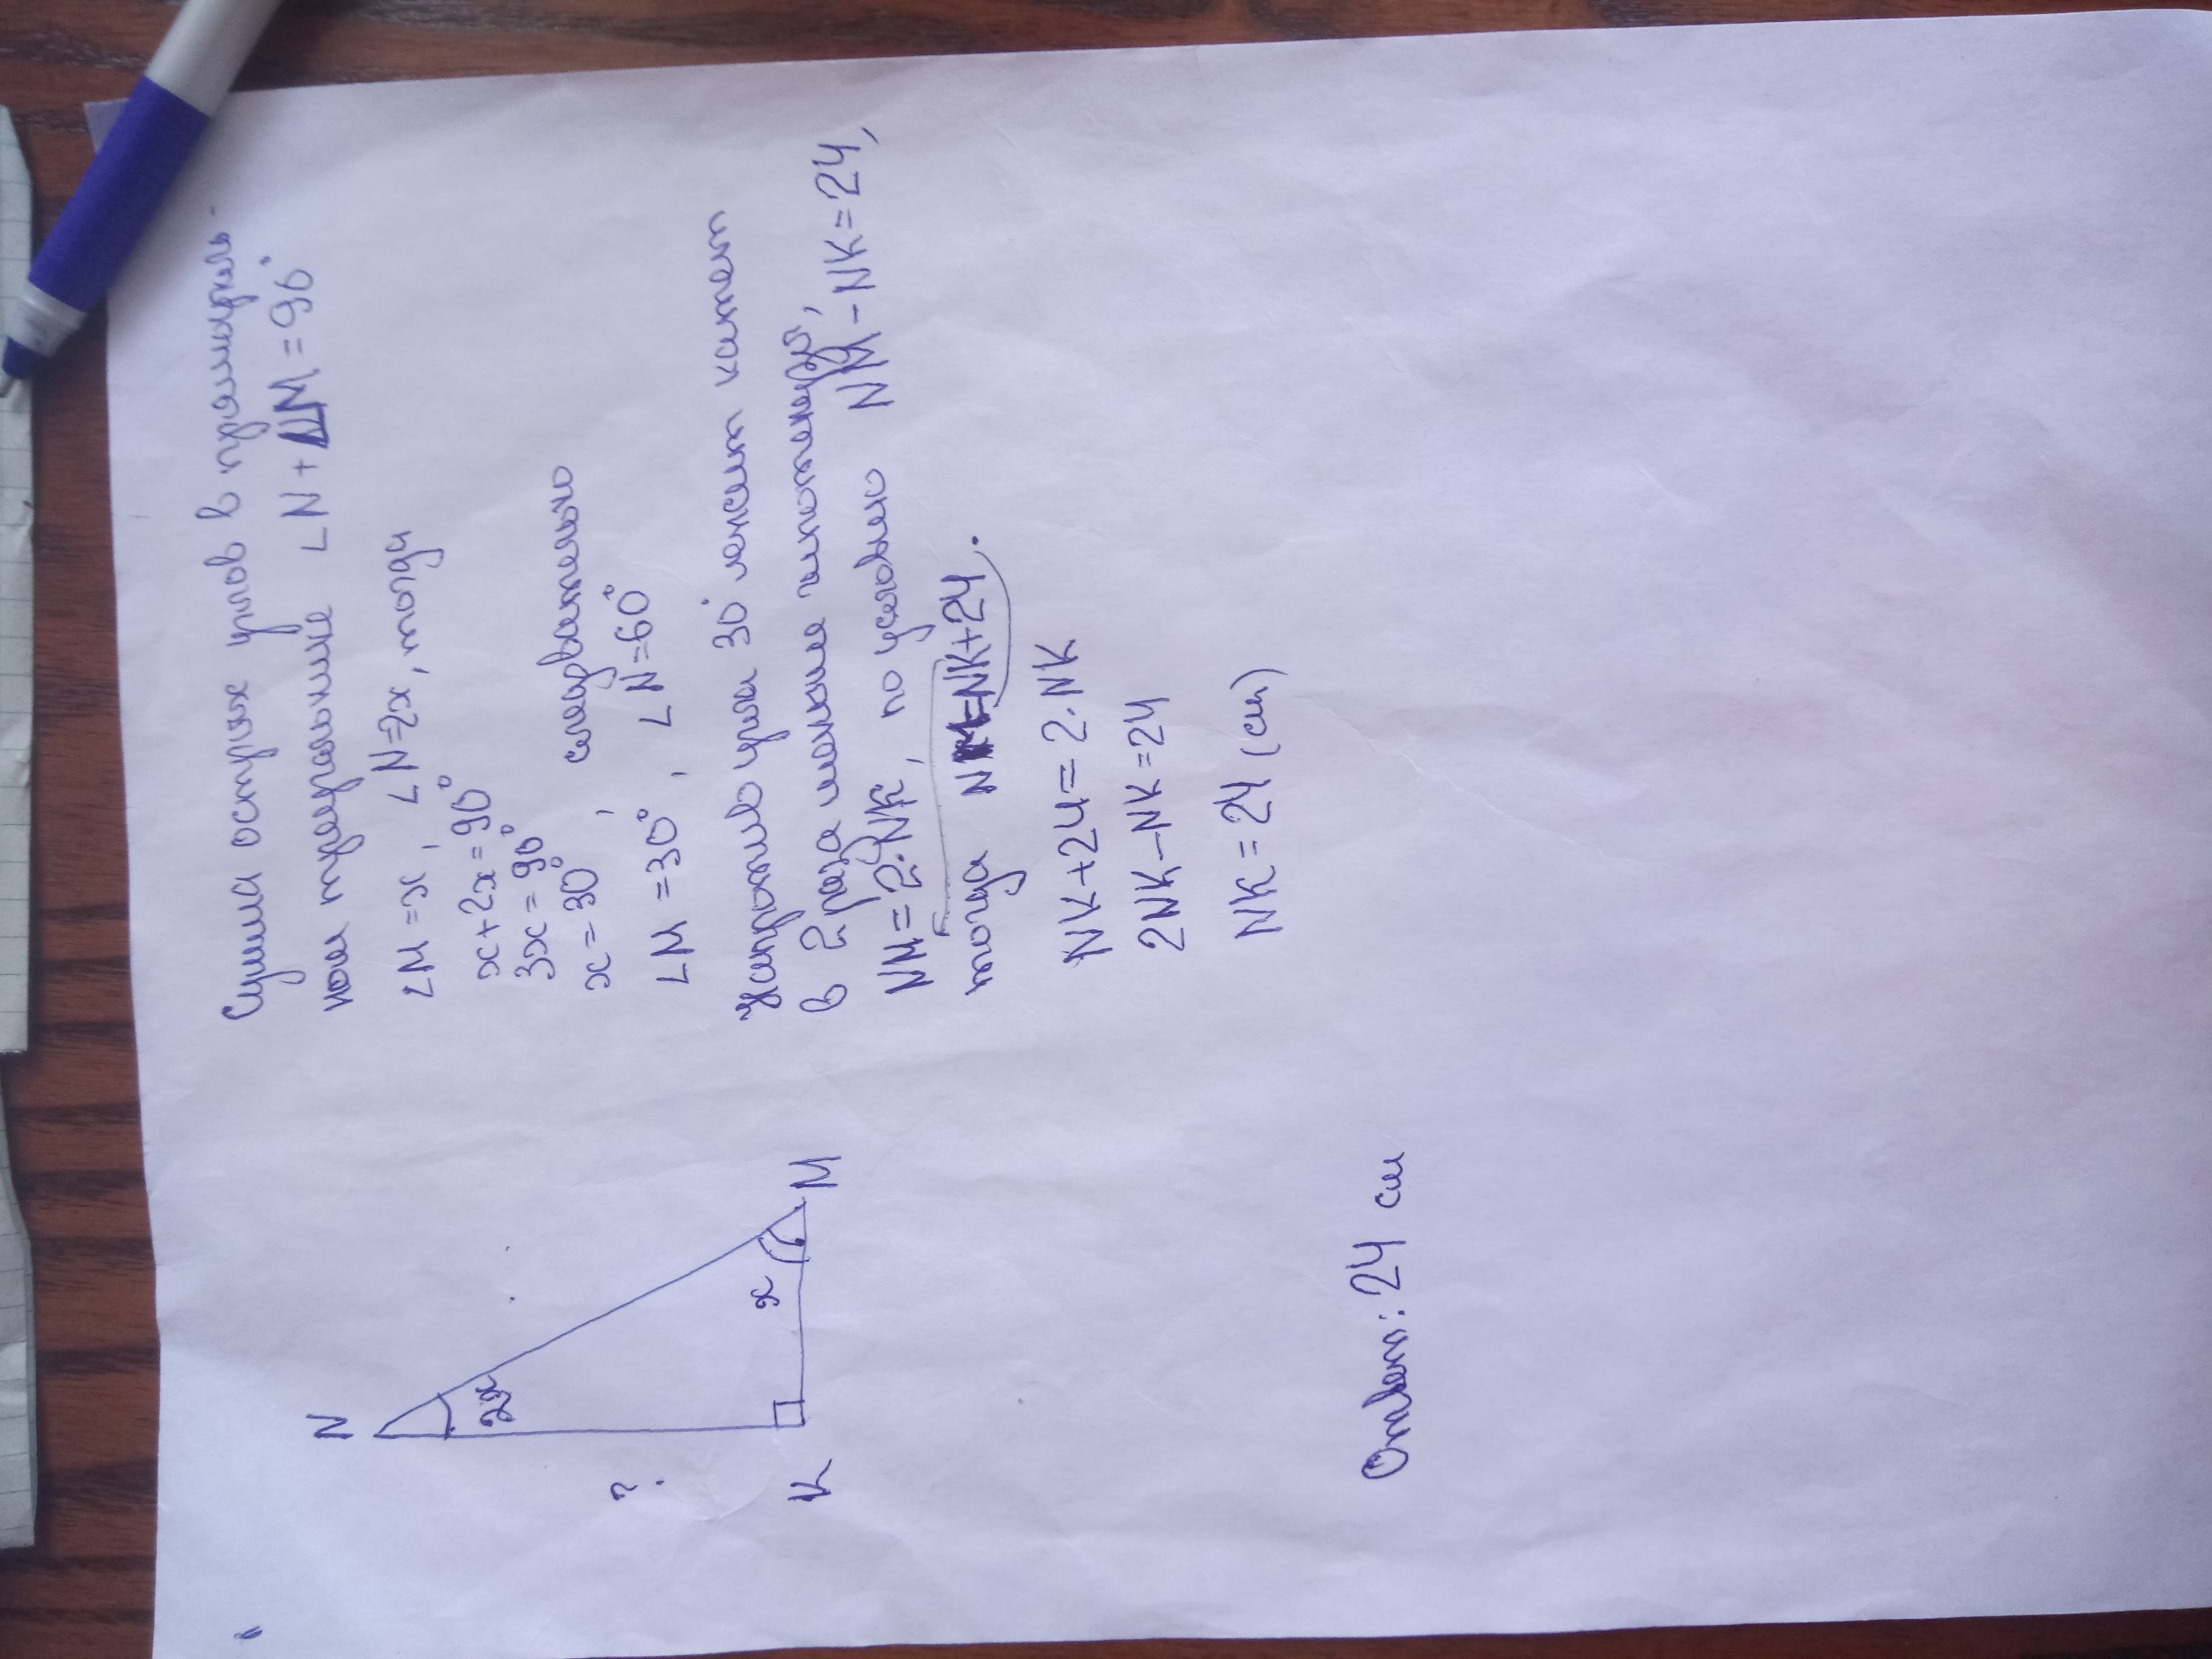 Сумма острых углов в прямоуголь-
ном треугольнике ∠N+∠M=90°
∠M=x, ∠N=2x, тогда
x+2x=90°
3x=90°
x=30°, следовательно
∠M=30°, ∠N=60°
Напротив угла 30° лежит катет
в 2 раза меньше гипотенузы,
NM=2·NK, по условию NM-NK=24,
тогда NM=NK+24.
NK+24=2·NK
2NK-NK=24
NK=24 (см)
N
2x
?
x
K
M
Ответ: 24 см